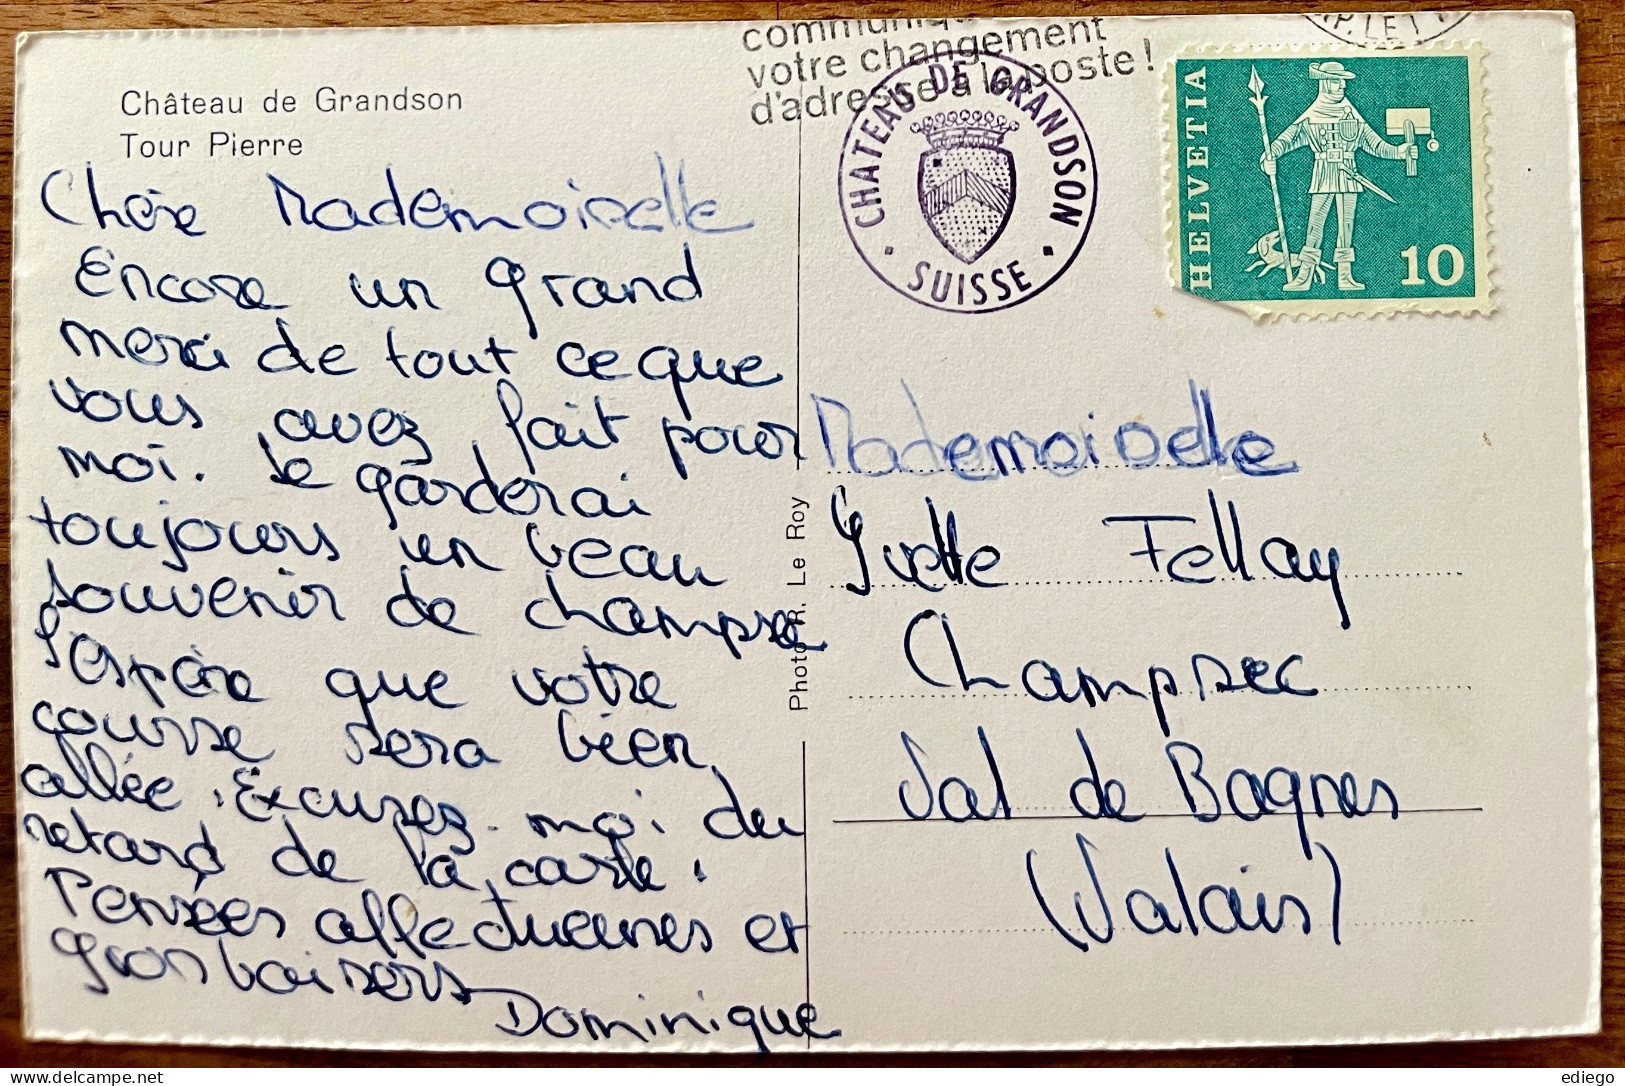 Château de Grandson
Tour Pierre
Chère Mademoiselle
Encore un grand
merci de tout ce que
vous avez fait pour
moi. Je garderai
toujours un beau
souvenir de champsec
J'espère que votre
course sera bien
allée. Excusez-moi du
retard de la carte.
Pensées affectueuses et
gros baisers
Dominique
Photo R. Le Roy
votre changement
d'adresse à la poste !
CHATEAU DE GRANDSON
SUISSE
HELVETIA
10
Mademoiselle
Yvette Fellay
Champsec
Val de Bagnes
(Valais)
ediego